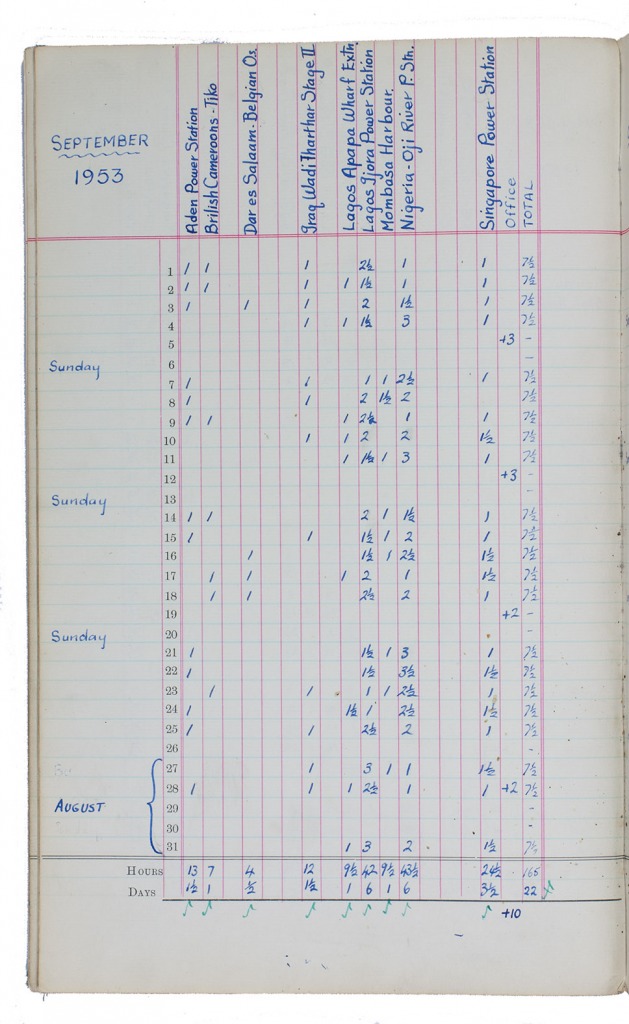 SEPTEMBER
1953
Aden Power Station
British Cameroons - Tiko
Dar es Salaam - Belgian Os.
Iraq Wadi Tharthar Stage II
Lagos Apapa Wharf Extn
Lagos Ijora Power Station
Mombasa Harbour.
Nigeria - Oji River P. Stn.
Singapore Power Station
Office
TOTAL
1 1 1 1 2½ 1 1 7½
2 1 1 1 1 1½ 1 1 7½
3 1 1 1 2 1½ 1 7½
4 1 1 1½ 3 1 7½
5 +3 -
Sunday 6 -
7 1 1 1 1 2½ 1 7½
8 1 1 2 1½ 2 7½
9 1 1 1 2½ 1 1 7½
10 1 1 2 2 1½ 7½
11 1 1½ 1 3 1 7½
12 +3 -
Sunday 13 -
14 1 1 2 1 1½ 1 7½
15 1 1 1½ 1 2 1 7½
16 1 1½ 1 2½ 1½ 7½
17 1 1 1 2 1 1½ 7½
18 1 1 2½ 2 1 7½
19 +2 -
Sunday 20 -
21 1 1½ 1 3 1 7½
22 1 1½ 3½ 1½ 7½
23 1 1 1 1 2½ 1 7½
24 1 1½ 1 2½ 1½ 7½
25 1 1 2½ 2 1 7½
26 -
27 1 3 1 1 1½ 7½
AUGUST 28 1 1 1 2½ 1 1 +2 7½
29 -
30 -
31 1 3 2 1½ 7½
HOURS 13 7 4 12 9½ 42 9½ 43½ 24½ 165
DAYS 1½ 1 ½ 1½ 1 6 1 6 3½ 22
+10